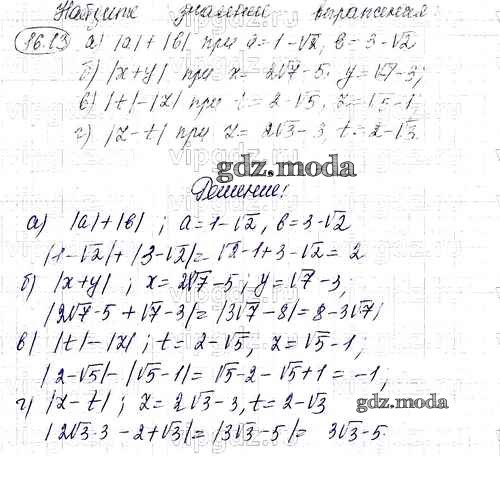 Найдите значение выражения:
16.13 а) |a|+|b| при a=1-√2, b=3-√2
б) |x+y| при x=2√7-5, y=√7-3;
в) |t|-|z| при t=2-√5, z=√5-1;
г) |z-t| при z=2√3-3, t=2-√3.
gdz.moda
Решение:
а) |a|+|b| ; a=1-√2, b=3-√2
|1-√2|+|3-√2|=√2-1+3-√2=2
б) |x+y| ; x=2√7-5; y=√7-3;
|2√7-5+√7-3|=|3√7-8|=8-3√7;
в) |t|-|z| ; t=2-√5, z=√5-1;
|2-√5|-|√5-1|=√5-2-√5+1=-1;
г) |z-t| ; z=2√3-3, t=2-√3
gdz.moda
|2√3-3-2+√3|=|3√3-5|=3√3-5.